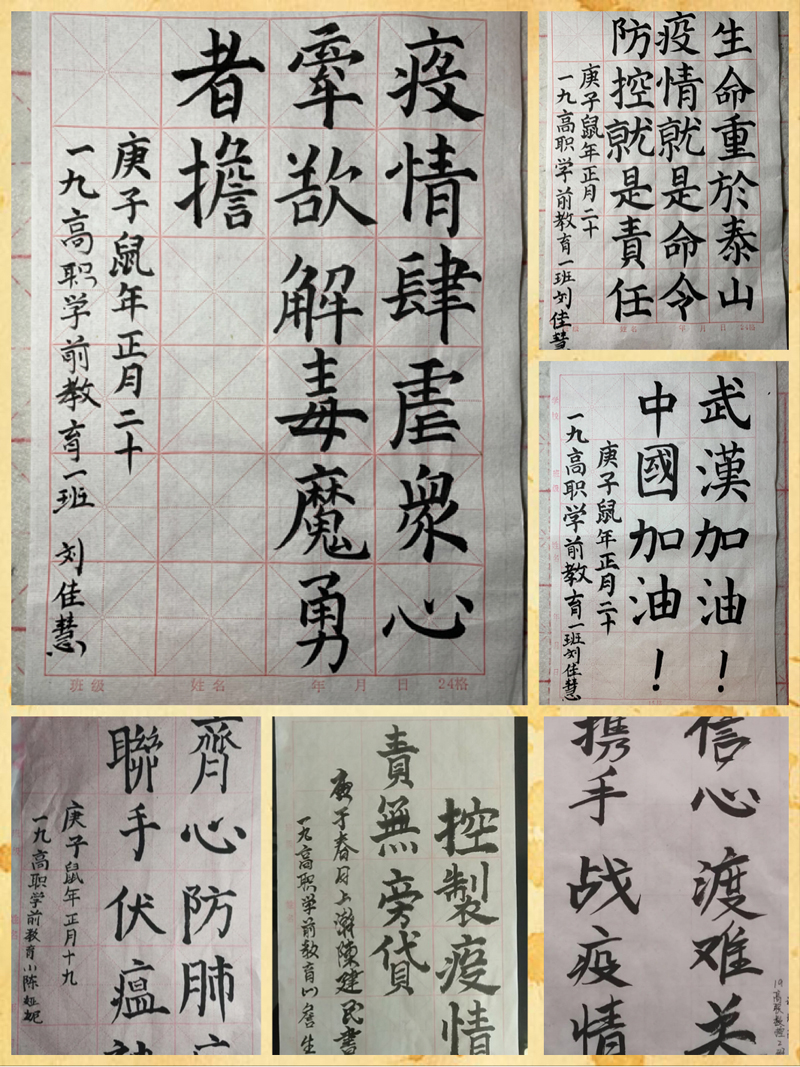 疫情肆虐衆心
牽解毒魔勇
者擔
庚子鼠年正月二十
一九高职学前教育一班 刘佳慧
班级 姓名 年 月 日 24格
生命重於泰山
疫情就是命令
防控就是責任
庚子鼠年正月二十
一九高职学前教育一班刘佳慧
武漢加油！
中國加油！
庚子鼠年正月二十
一九高职学前教育一班刘佳慧
齊心防肺
聯手伏瘟
庚子鼠年正月十九
一九高职学前教育小陈
控製疫情
責無旁貸
庚子春日上陳建民書
一九高职学前教育詹生
信心渡难
携手战疫情